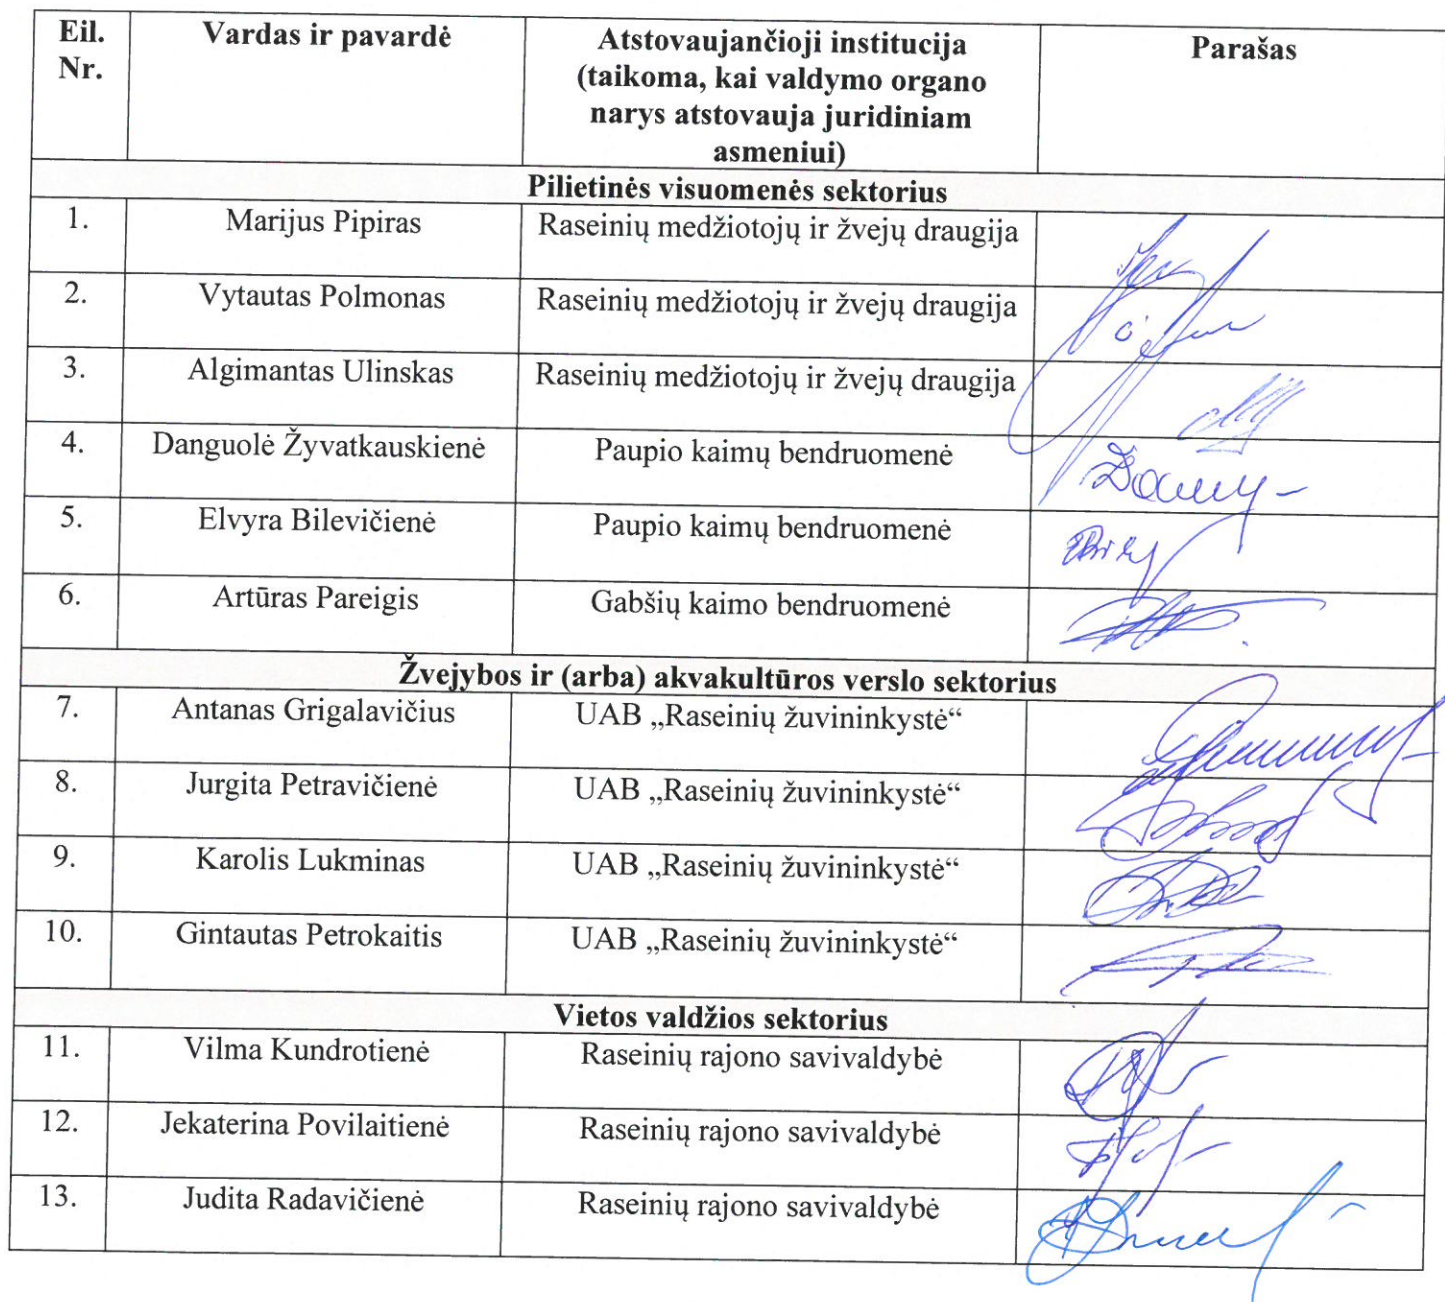 Eil. Nr. Vardas ir pavardė Atstovaujančioji institucija (taikoma, kai valdymo organo narys atstovauja juridiniam asmeniui) Parašas
Pilietinės visuomenės sektorius
1. Marijus Pipiras Raseinių medžiotojų ir žvejų draugija
2. Vytautas Polmonas Raseinių medžiotojų ir žvejų draugija
3. Algimantas Ulinskas Raseinių medžiotojų ir žvejų draugija
4. Danguolė Žyvatkauskienė Paupio kaimų bendruomenė
5. Elvyra Bilevičienė Paupio kaimų bendruomenė
6. Artūras Pareigis Gabšių kaimo bendruomenė
Žvejybos ir (arba) akvakultūros verslo sektorius
7. Antanas Grigalavičius UAB „Raseinių žuvininkystė“
8. Jurgita Petravičienė UAB „Raseinių žuvininkystė“
9. Karolis Lukminas UAB „Raseinių žuvininkystė“
10. Gintautas Petrokaitis UAB „Raseinių žuvininkystė“
Vietos valdžios sektorius
11. Vilma Kundrotienė Raseinių rajono savivaldybė
12. Jekaterina Povilaitienė Raseinių rajono savivaldybė
13. Judita Radavičienė Raseinių rajono savivaldybė